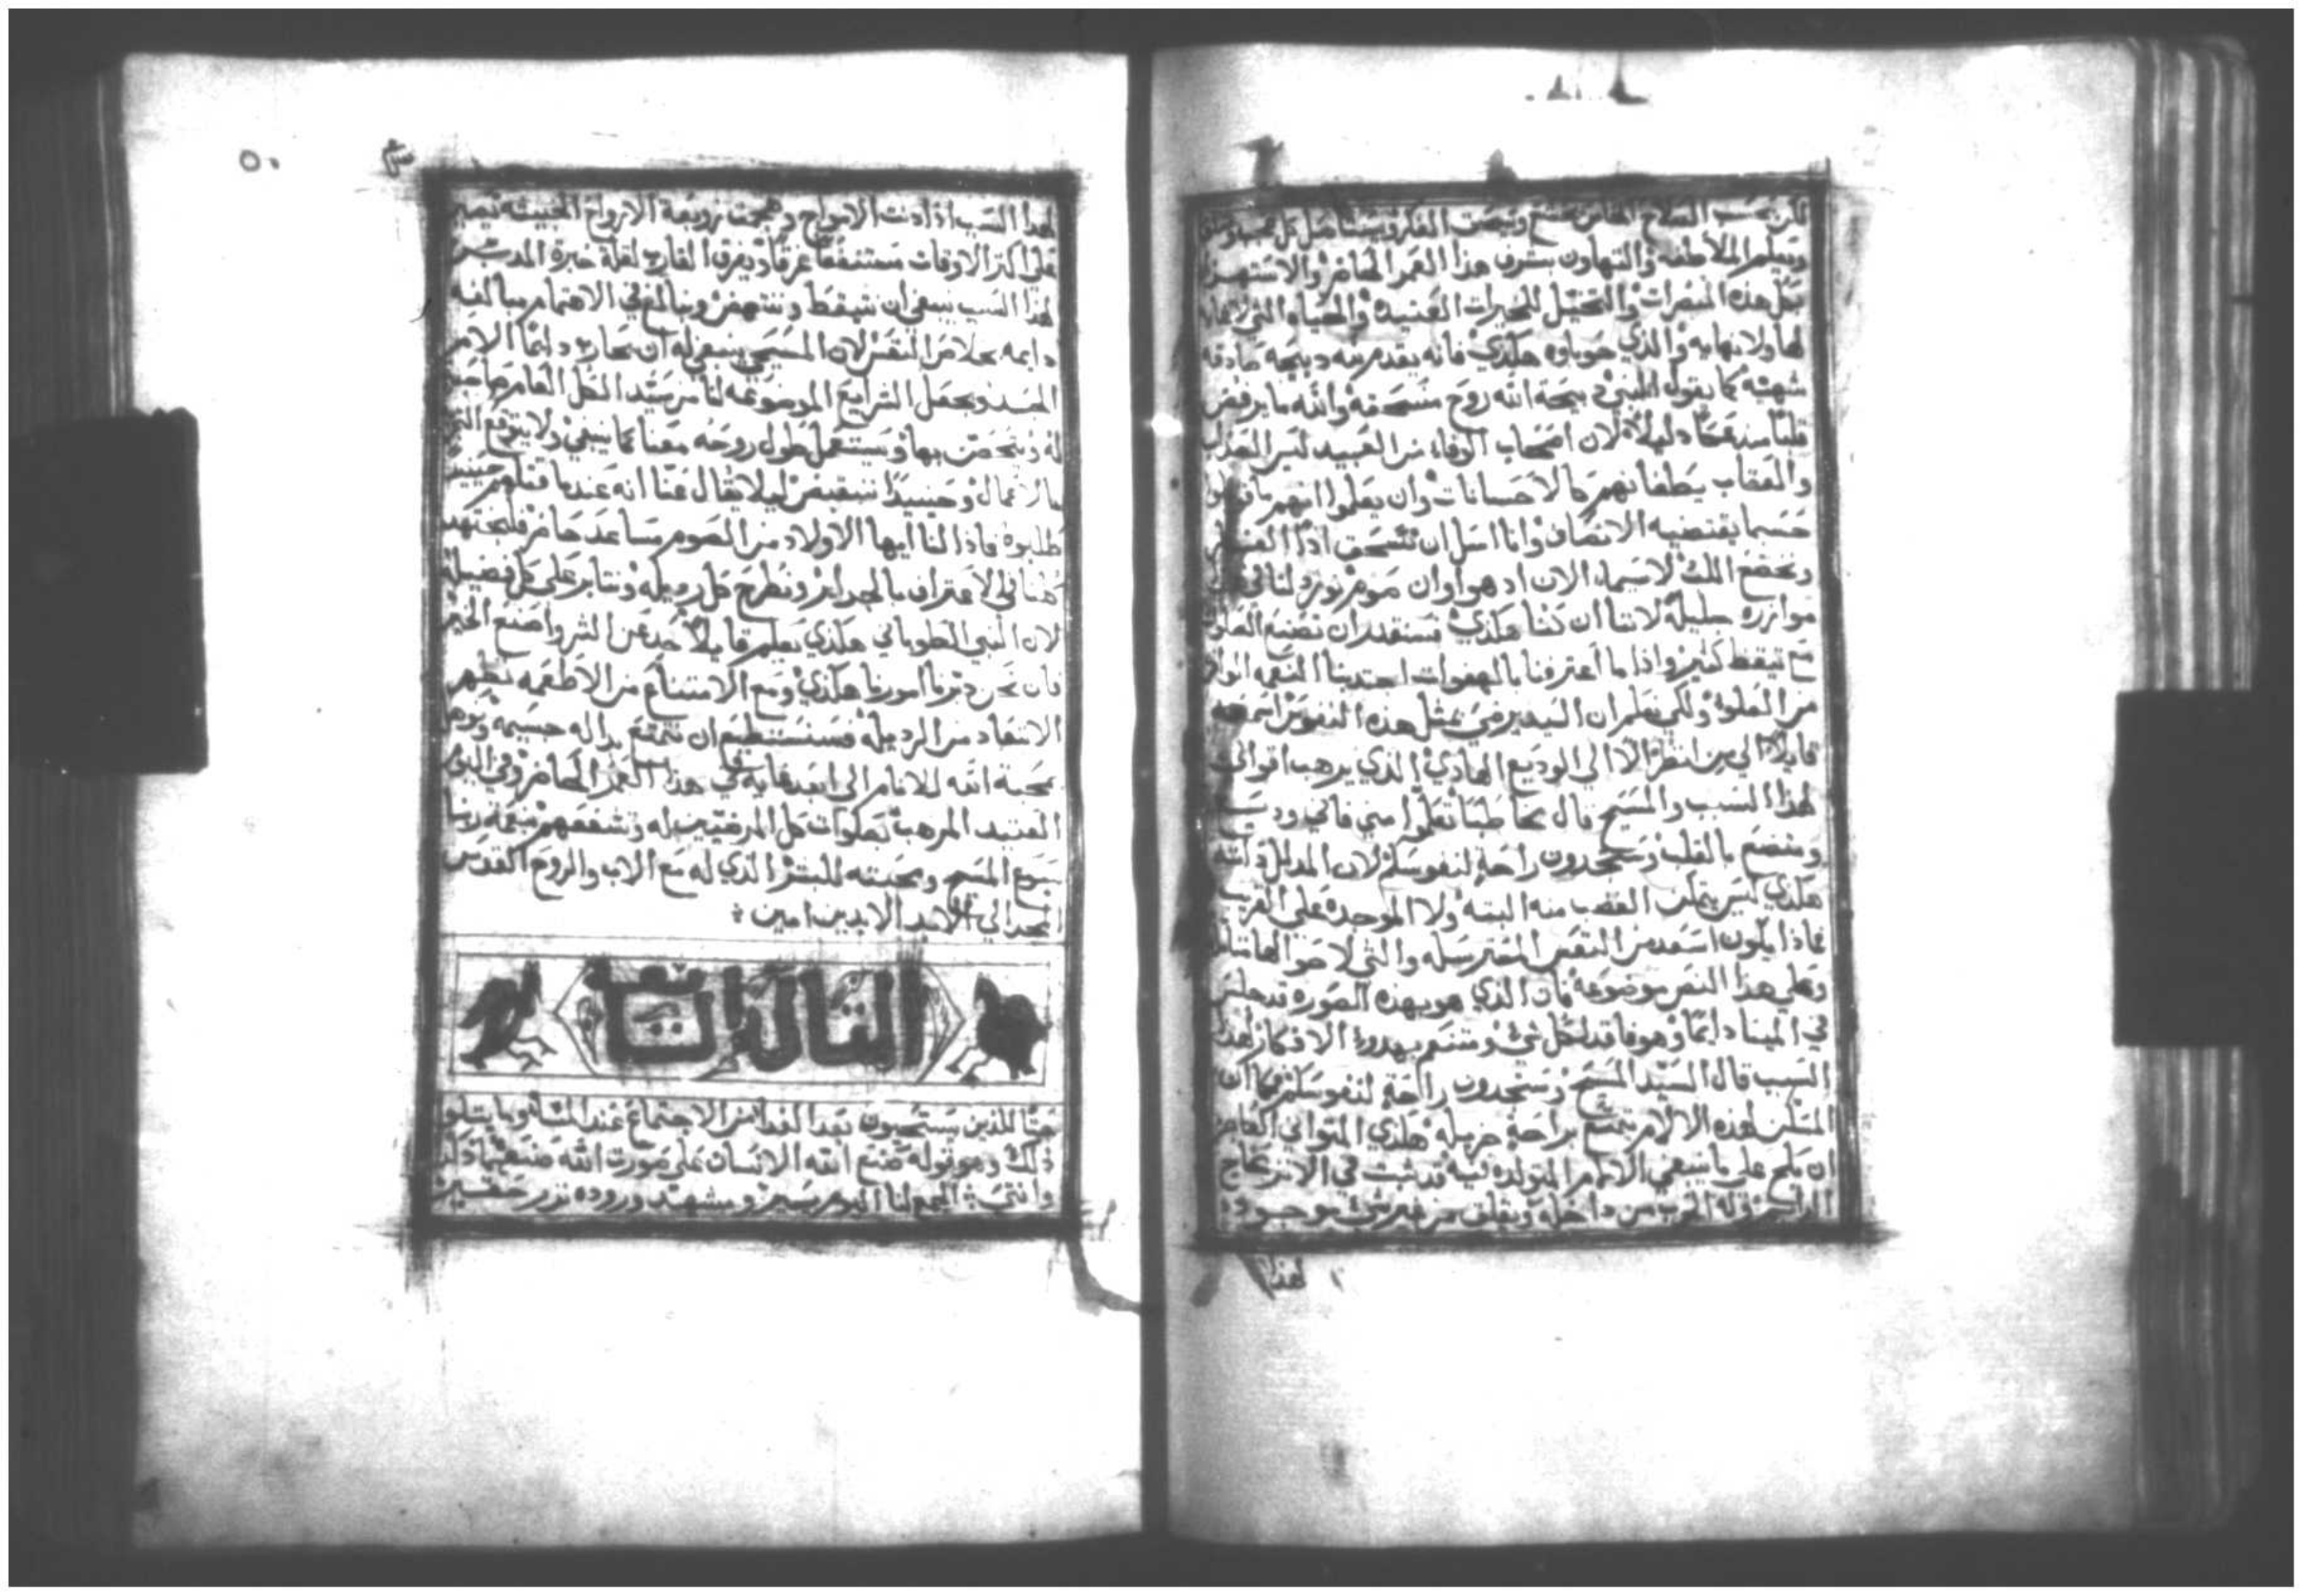 لكن بسبب الصلاح الخاص نقنع وتنهض الفكر ويبيننا
ويعلم الملاطفه والتهاون بشرف هذا العمر الحاضر والاستهزا
بكل هذه المبصرات والتخيل للخيرات العتيده والحياه التي لا
لها ولا نهايه والذي حوباوه هكذي فانه يقدم منه دبيحة صادقه
شهيه كما يقول النبي دبيحة الله روح منسحقه والله ما يرفض
قلبًا دليلًا لان اصحاب الوفاء من العبيد ليس العذاب
والعقاب يعطفانهم كالاحسانات وان يعلموا انهم
حسبما يقتضيه الانصاف وانا اسل ان تنسحق ادًا
ونخضع الله لاسيما الان اد هو اوان صوم يورد لنا
موازره جليله لاننا ان كنا هكذي فسنقدر ان نصنع الصلوه
مع تيقظ كثير واذا ما اعترفنا بالهفوات اجتدبنا النعمه
من العلوه ولكي نعلم ان السيد يرضي بمثل هذه النفوس اسمعه
قايلًا الي من انظر الا الي الوديع الهادي الذي يرهب اقوالي
لهذا السبب والمسيح قال يخاطبنا تعلموا مني فاني وديع
ومتضع بالقلب وستجدون راحة لنفوسكم لان المدلل ذاته
هكذي ليس يتمكن الغضب منه البته ولا الموجده علي القريب
فماذا يكون اسعد من النفس
وعلي هذا النص موضوعة فان الذي هو بهذه الصوره قد جلس
في المينا دايمًا وهو فاقد لكل شي ومتنعم بهدوء الافكار لهذا
السبب قال السيد المسيح وستجدون راحة لنفوسكم فكما ان
المسكن لهذه الالام يتمتع براحة جزيله هكذي المتواني الغامر
ان يلجم علي ما ينبغي الالام المتولده فيه قد ثبت في الانزعاج
الدايم وله الحرب من داخله ويقلق من غير شي موجود
لهذا
٥٠
لهذا السبب اذا دنت الامواج وهجمت زوبعة الارواح الخبيثه تصير
علي اكثر الاوقات غرقًا ويغرق القارب لقلة خبرة المدبر
لهذا السبب ينبغي ان نتيقظ وننتهض ونبالغ في الاهتمام مبالغه
دايمه بخلاص النفس لان المسيحي ينبغي له ان يحارب دايمًا الامر
ويجعل الشرايع الموضوعه لنا من سيد الكل
له ويتحصن بها ويستعمل طول روحه معنا كما ينبغي ولا يتوقع
بالاعمال وحينيدًا ننقبض ليلا يقال عنا انه عندما قتلهم حينيد
طلبوه فاذا لنا ايها الاولاد من الصوم مساعد حاضر فلنجتهد
هنا في الاعتراف بالجراير ونطرح كل رديله ونثابر علي كل فضيلة
لان النبي الطوباني هكذي يعلم قايلا حد عن الشر واصنع الخير
فان نحن دبرنا امورنا هكذي ومع الامتناع من الاطعمه نظهر
الابتعاد من الرديله فسنستطيع ان نتمتع بداله جسيمه ونوهل
لمحبة الله للانام الي ابعد غايه في هذا العمر الحاضر وفي اليوم
العتيد المرهب بصلوات كل المرضيين له وتشفعهم بنعمة ربنا
يسوع المسيح ومحبته للبشر الذي له مع الاب والروح القدس
المجد الي الابد الابدين امين
الثالث
حثًا للذين يستحيون بعد الغدا من الاجتماع عند المسا وما يتلو
ذلك وهو قوله صنع الله الانسان علي صورت الله صنعهما ذكر
وانثي الجمع لنا اليوم يسير ومشهد وروده نزر حقير